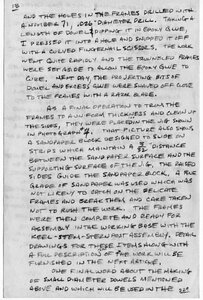 AND THE HOLES IN THE FRAMES DRILLED WITH
A NUMBER 71, .026" DIAMETER DRILL. TAKING A
LENGTH OF DOWEL, DIPPING IT IN EPOXY GLUE,
I PRESSED IT INTO A HOLE AND SNIPPED IT OFF
WITH CURVED FINGERNAIL SCISSORS. THE WORK
WENT QUITE RAPIDLY AND THE TRUNNELED FRAMES
WERE SET ASIDE TO ALLOW THE EPOXY GLUE TO
CURE. NEXT DAY THE PROJECTING BITS OF
DOWEL AND EXCESS GLUE WERE SHAVED OFF CLOSE
TO THE FRAMES WITH A RAZOR BLADE.
AS A FINAL OPERATION TO TRIM THE
FRAMES TO A UNIFORM THICKNESS AND CLEAN UP
THE SIDES, THEY WERE PLACED IN THE JIG SHOWN
IN PHOTOGRAPH 4. THAT PICTURE ALSO SHOWS
A SANDPAPER BLOCK DESIGNED TO SLIDE ON
STRIPS WHICH MAINTAIN A DISTANCE
BETWEEN THE SANDPAPER SURFACE AND THE
SUPPORTING SURFACE OF THE JIG. THE RAISED
SIDES GUIDE THE SAND PAPER BLOCK. A FINE
GRADE OF SAND PAPER WAS USED WHICH WAS
NOT LIKELY TO CATCH ON THE DELICATE
FRAMES AND BREAK THEM, AND CARE TAKEN
NOT TO RUSH THE WORK. THE FRAMES
WERE THEN COMPLETE AND READY FOR
ASSEMBLY IN THE WORKING BASE WITH THE
KEEL-STEM-STERN POST ASSEMBLY. DETAIL
DRAWINGS FOR THESE ITEMS ALONG WITH
A FULL DESCRIPTION OF THE WORK WILL BE
FURNISHED IN THE NEXT ARTICLE.
ONE FINAL WORD ABOUT THE MAKING
OF SMALL DIAMETER DOWELS MENTIONED
ABOVE AND WHICH WILL BE USED IN THE